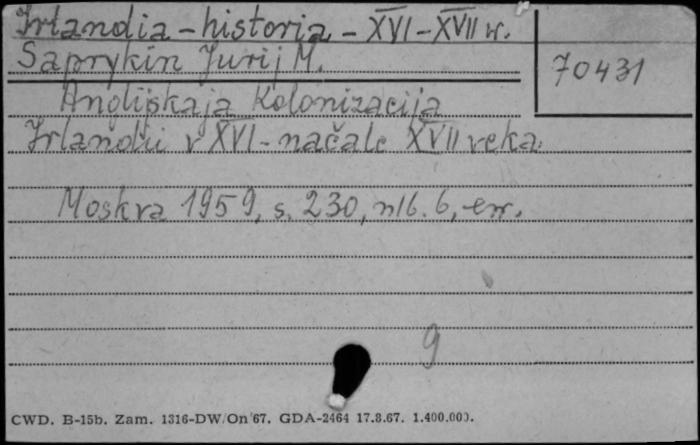 Irlandia - historia - XVI - XVII w.
Saprykin Jurij M.
70431
Anglijskaja Kolonizacija
Irlandii v XVI - načale XVII veka
Moskva 1959, s. 230, nlb. 6, err.
9
CWD. B-15b. Zam. 1316-DW/On/67. GDA-2464 17.8.67. 1.400.000.